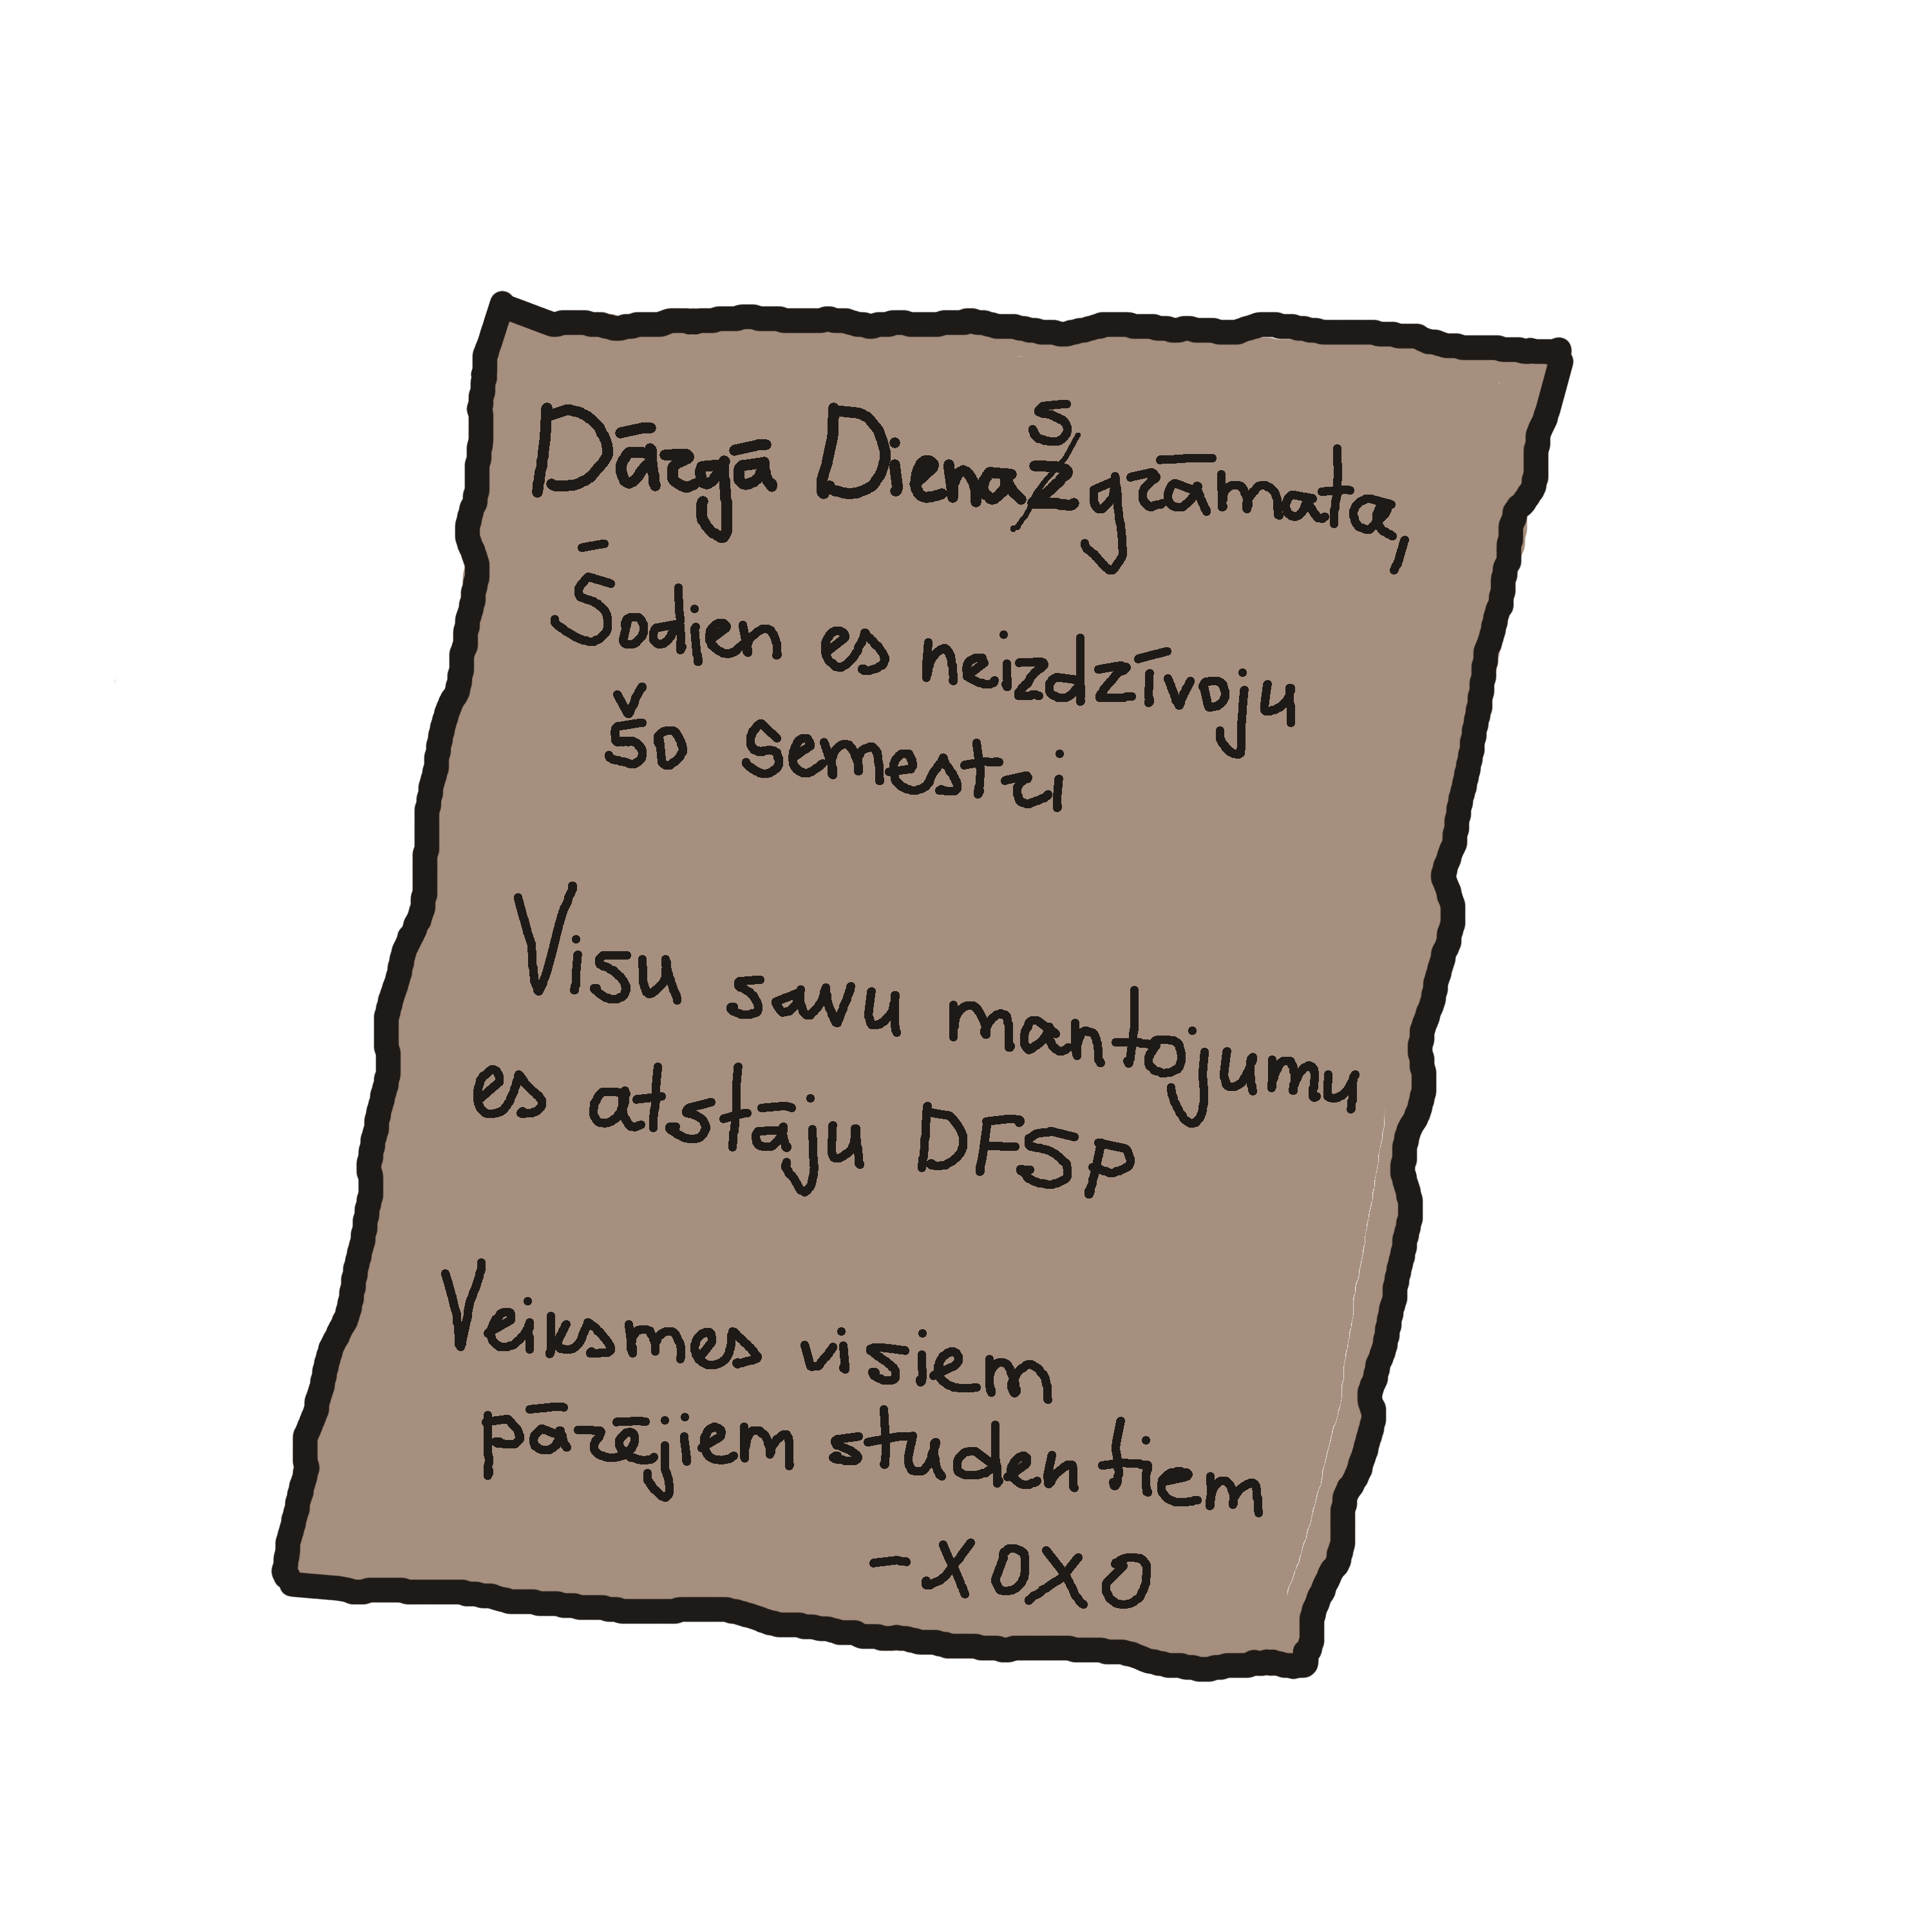 Dārgā Dienasgrāmata,
Šodien es neizdzīvoju
šo semestri
Visu savu mantojumu
es atstāju DFSP
Veiksmes visiem
pārējiem studentiem
- XOXO